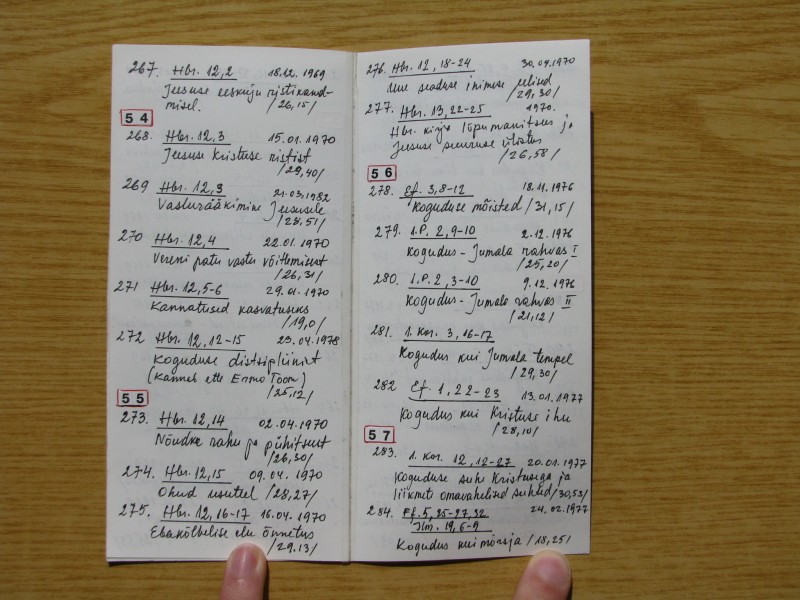 267. Hbr. 12,2 18.12. 1969
Jeesuse eeskuju ristikand-
misel. /26,15/
54
268. Hbr. 12,3 15.01. 1970
Jeesuse Kristuse ristist
/29,40/
269 Hbr. 12,3 21.03.1982
Vasturääkimine Jeesusele
/28,51/
270 Hbr. 12,4 22.01. 1970
Vereni patu vastu võitlemisest
/26,31/
271 Hbr. 12,5-6 29.01. 1970
Kannatused kasvatuseks
/19,0/
272 Hbr. 12,12-15 23.04.1978
Koguduse distsipliinist
(Kannab ette Ermo Toom)
/25,12/
55
273. Hbr. 12,14 02.04.1970
Nõudke rahu ja pühitsust
/26,30/
274. Hbr. 12,15 09.04. 1970
Ohud usuteel /28,27/
275. Hbr. 12,16-17 16.04. 1970
Ebakõlbelise elu õnnetus
/29.13/
276. Hbr. 12, 18-24 30.04.1970
Uue seaduse inimese eelised
/29,30/
277. Hbr. 13, 22-25 1970.
Hbr. kirja lõpumanitsus ja
Jeesuse suuruse ülistus
/26,58/
56
278. Ef. 3,8-12 18.11. 1976
Koguduse mõisted /31,15/
279. 1.P. 2,9-10 2.12.1976
Kogudus - Jumala rahvas I
/25,20/
280. 1.P. 2, 3-10 9.12. 1976
Kogudus - Jumala rahvas II
/21,12/
281. 1. Kor. 3, 16-17
Kogudus kui Jumala tempel
/29,30/
282 Ef. 1, 22-23 13.01.1977
Kogudus kui Kristuse ihu
/28,10/
57
283. 1. Kor. 12, 12-27 20.01.1977
Koguduse suhe Kristusega ja
liikmete omavahelised suhted /30,53/
284. Ef. 5, 25-27,32 24.02.1977
Ilm. 19, 6-9
Kogudus kui mõrsja /18,25/